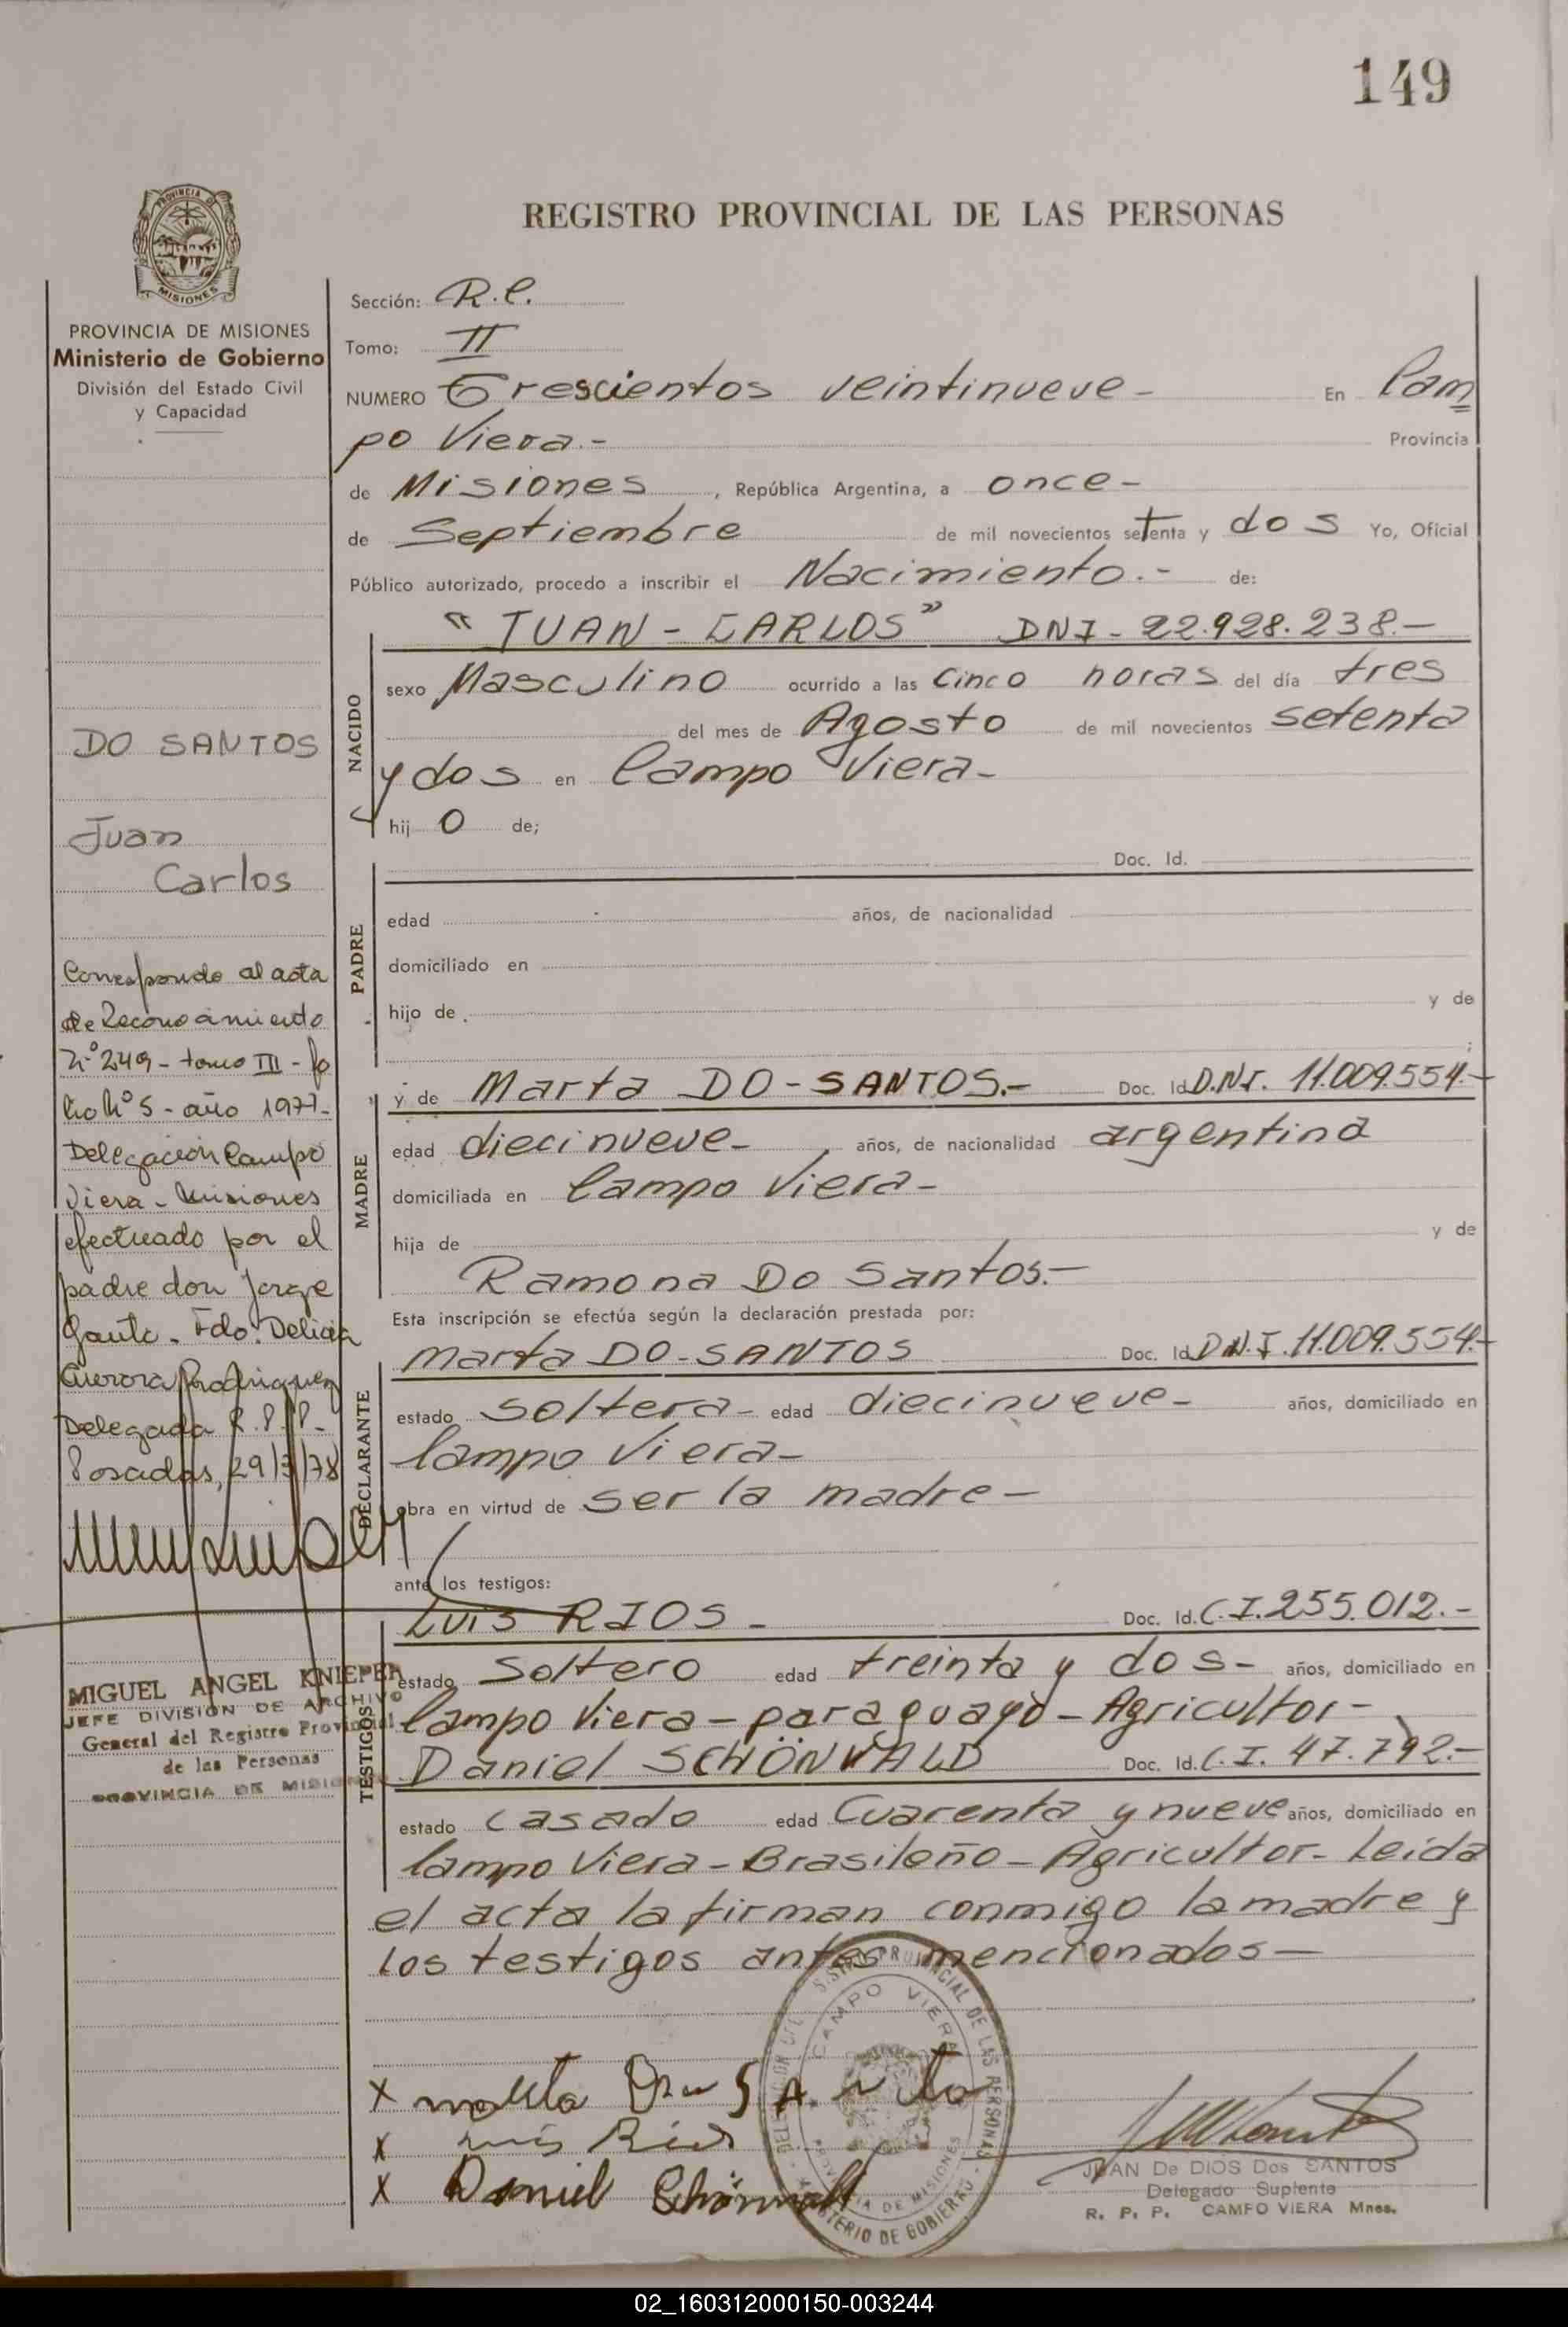 149
REGISTRO PROVINCIAL DE LAS PERSONAS
PROVINCIA DE
MISIONES
PROVINCIA DE MISIONES
Ministerio de Gobierno
División del Estado Civil
y Capacidad
DO SANTOS
Juan
Carlos
Corresponde al acta
de Reconocimiento
Nº 249 - tomo III - fo
lio Nº 5 - año 1977-
Delegación Campo
Viera - Misiones
efectuado por el
padre don Jorge
Fdo. Delicia
Aurora Rodriguez
Delegada R.P.P.-
Posadas, 29/3/78
MIGUEL ANGEL KNIEPER
JEFE DIVISION DE ARCHIVO
General del Registro Provincial
de las Personas
PROVINCIA DE MISIONES
Sección: R.C.
Tomo: II
NUMERO Trescientos veintinueve - En Cam
po Viera.- Provincia
de Misiones, República Argentina, a once -
de Septiembre de mil novecientos setenta y dos Yo, Oficial
Público autorizado, procedo a inscribir el Nacimiento.- de:
NACIDO
"JUAN - CARLOS" DNI - 22.928.238.-
sexo Masculino ocurrido a las cinco horas del día tres
del mes de Agosto de mil novecientos setenta
y dos en Campo Viera-
hij o de;
PADRE
Doc. Id.
edad años, de nacionalidad
domiciliado en
hijo de y de
;
MADRE
y de Marta DO-SANTOS.- Doc. Id. D.N.I. 11.009.554.-
edad diecinueve- años, de nacionalidad argentina
domiciliada en Campo Viera-
hija de y de
Ramona Do Santos.-
Esta inscripción se efectúa según la declaración prestada por:
DECLARANTE
Marta DO-SANTOS Doc. Id. D.N.I. 11.009.554.-
estado soltera- edad diecinueve- años, domiciliado en
Campo Viera-
obra en virtud de ser la madre-
ante los testigos:
TESTIGOS
Luis RIOS - Doc. Id. C.I. 255.012.-
estado Soltero edad treinta y dos- años, domiciliado en
Campo Viera - paraguayo - Agricultor-
Daniel SCHÖNVALD Doc. Id. C.I. 47.792.-
estado casado edad Cuarenta y nueve años, domiciliado en
Campo Viera - Brasileño - Agricultor- Leída
el acta la firman conmigo la madre y
los testigos antes mencionados-
CAMPO VIERA
PROVINCIA DE MISIONES
MINISTERIO DE GOBIERNO
x
x Luis Rios
x Daniel
JUAN De DIOS Dos SANTOS
Delegado Suplente
R. P. P. CAMPO VIERA Mnes.
02_160312000150-003244